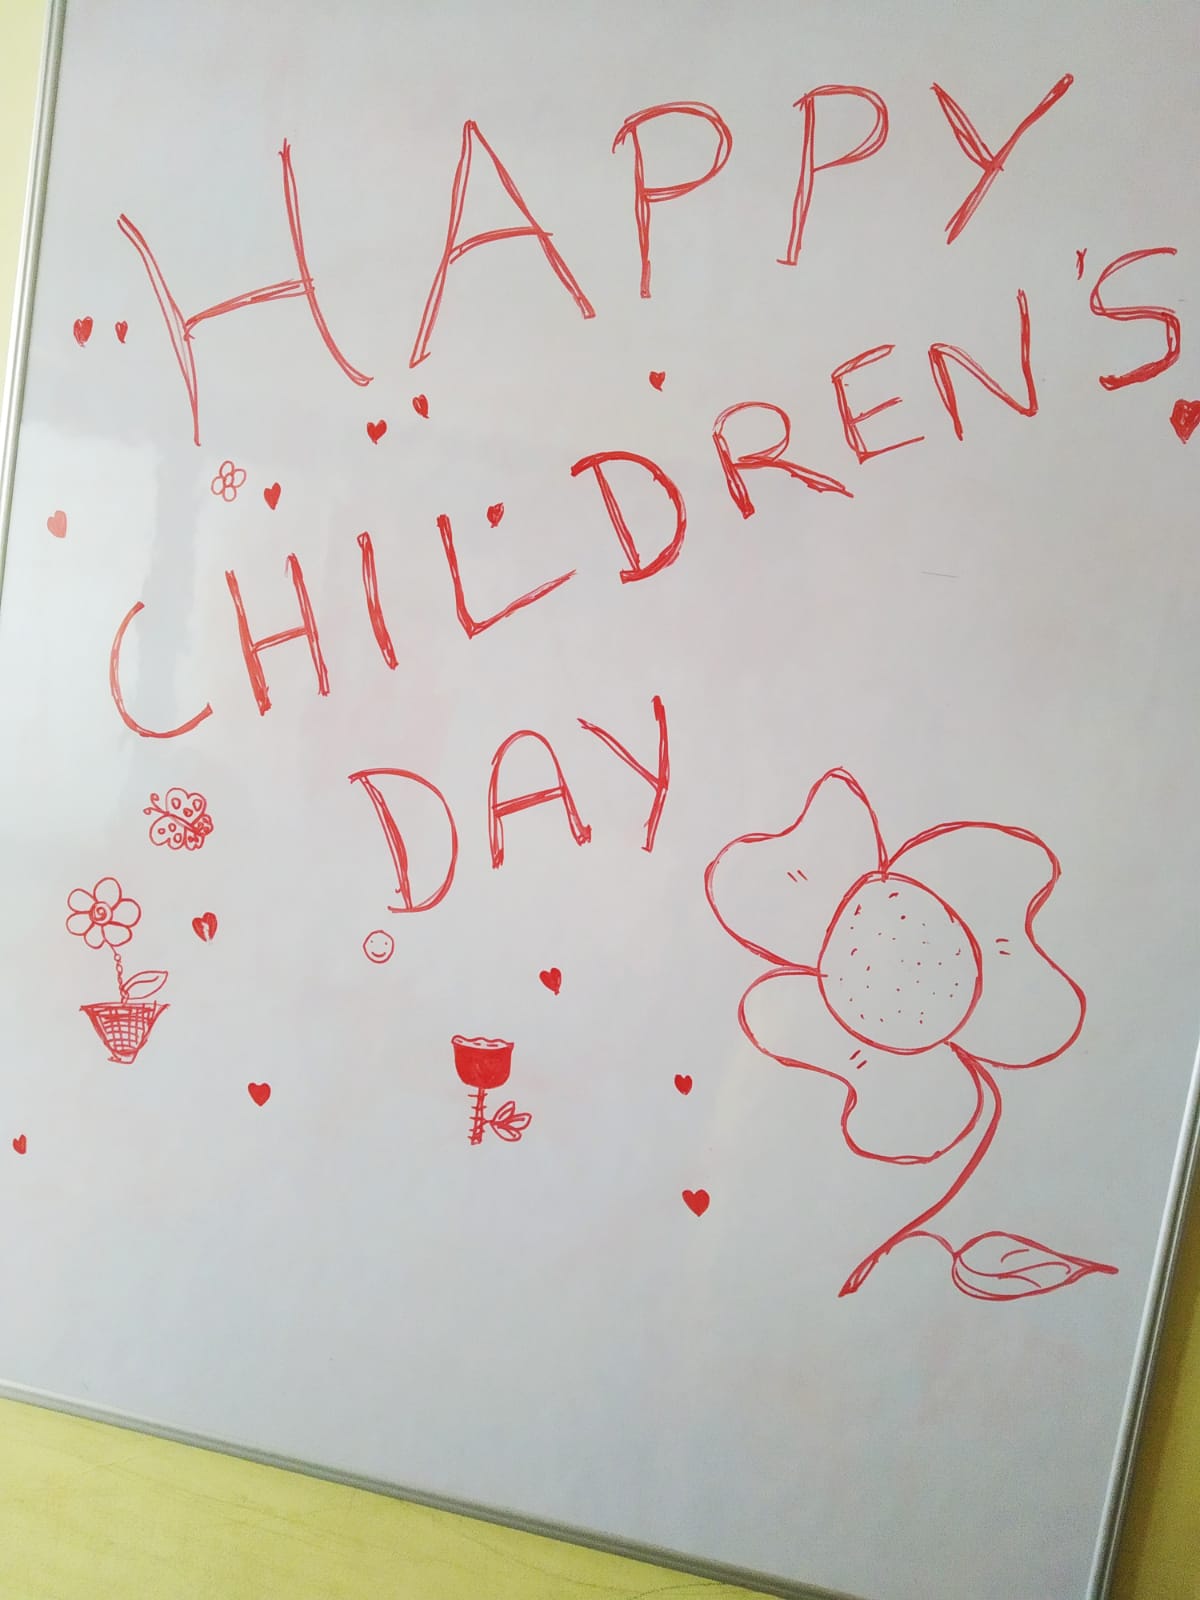 HAPPY
CHILDREN'S
DAY